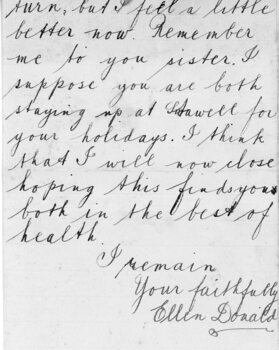 turn, but I feel a little
better now. Remember
me to you sister. I
suppose you are both
staying up at Stawell for
your holidays. I think
that I will now close
hoping this finds you
both in the best of
health.
I remain
Your faithfully
Ellen Donald